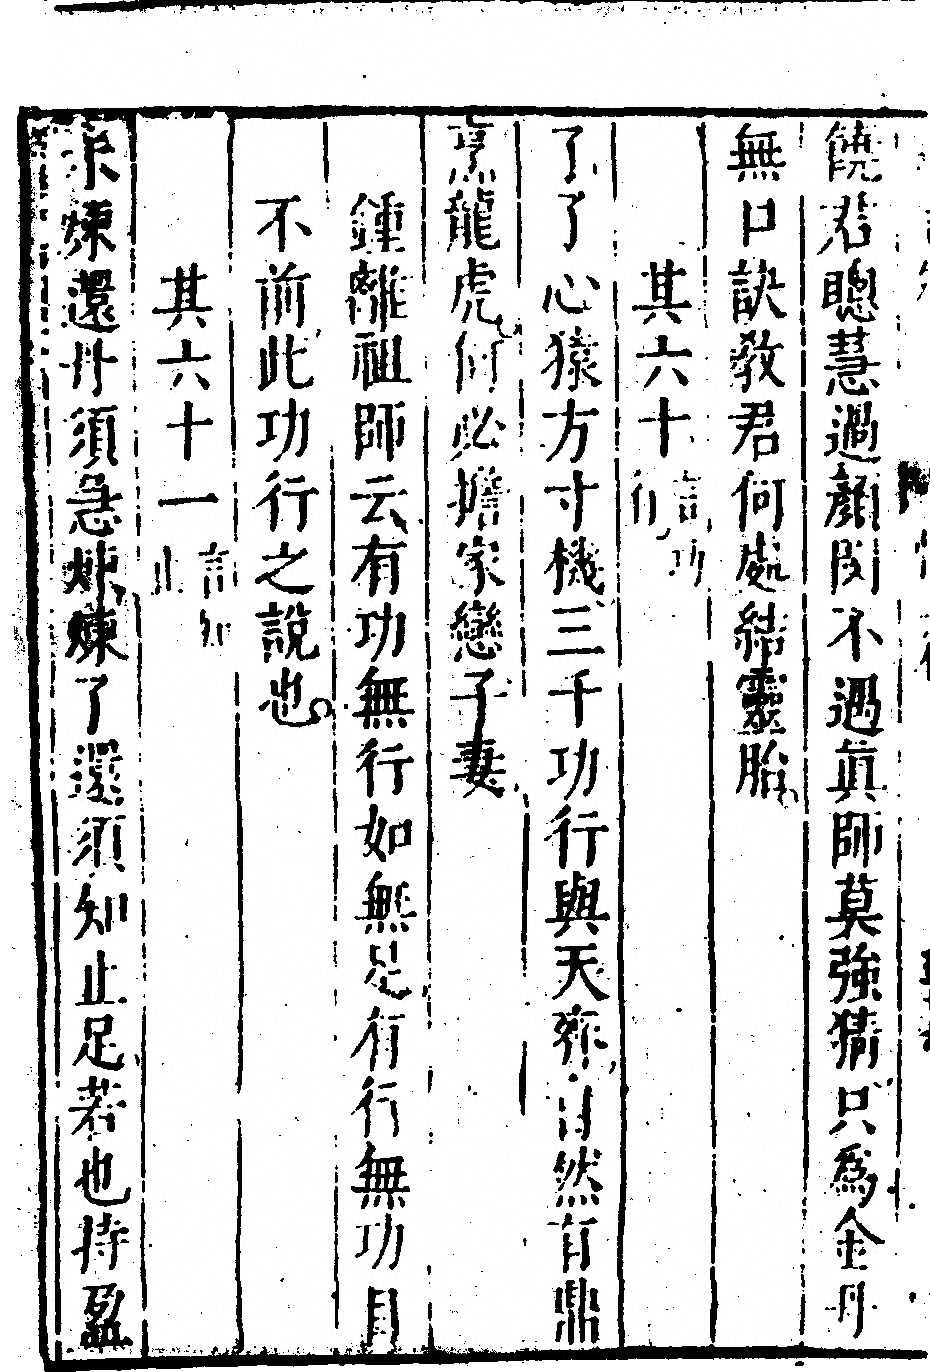 饒君聰慧過顏閔不遇眞師莫強猜只爲金丹
無口訣教君何處結靈胎
其六十言功行
了了心猿方寸機三千功行與天齊自然有鼎
烹龍虎何必擔家戀子妻
鍾離祖師云有功無行如無足有行無功目
不前此功行之說也
其六十一言知止
未煉還丹須急煉煉了還須知止足若也持盈